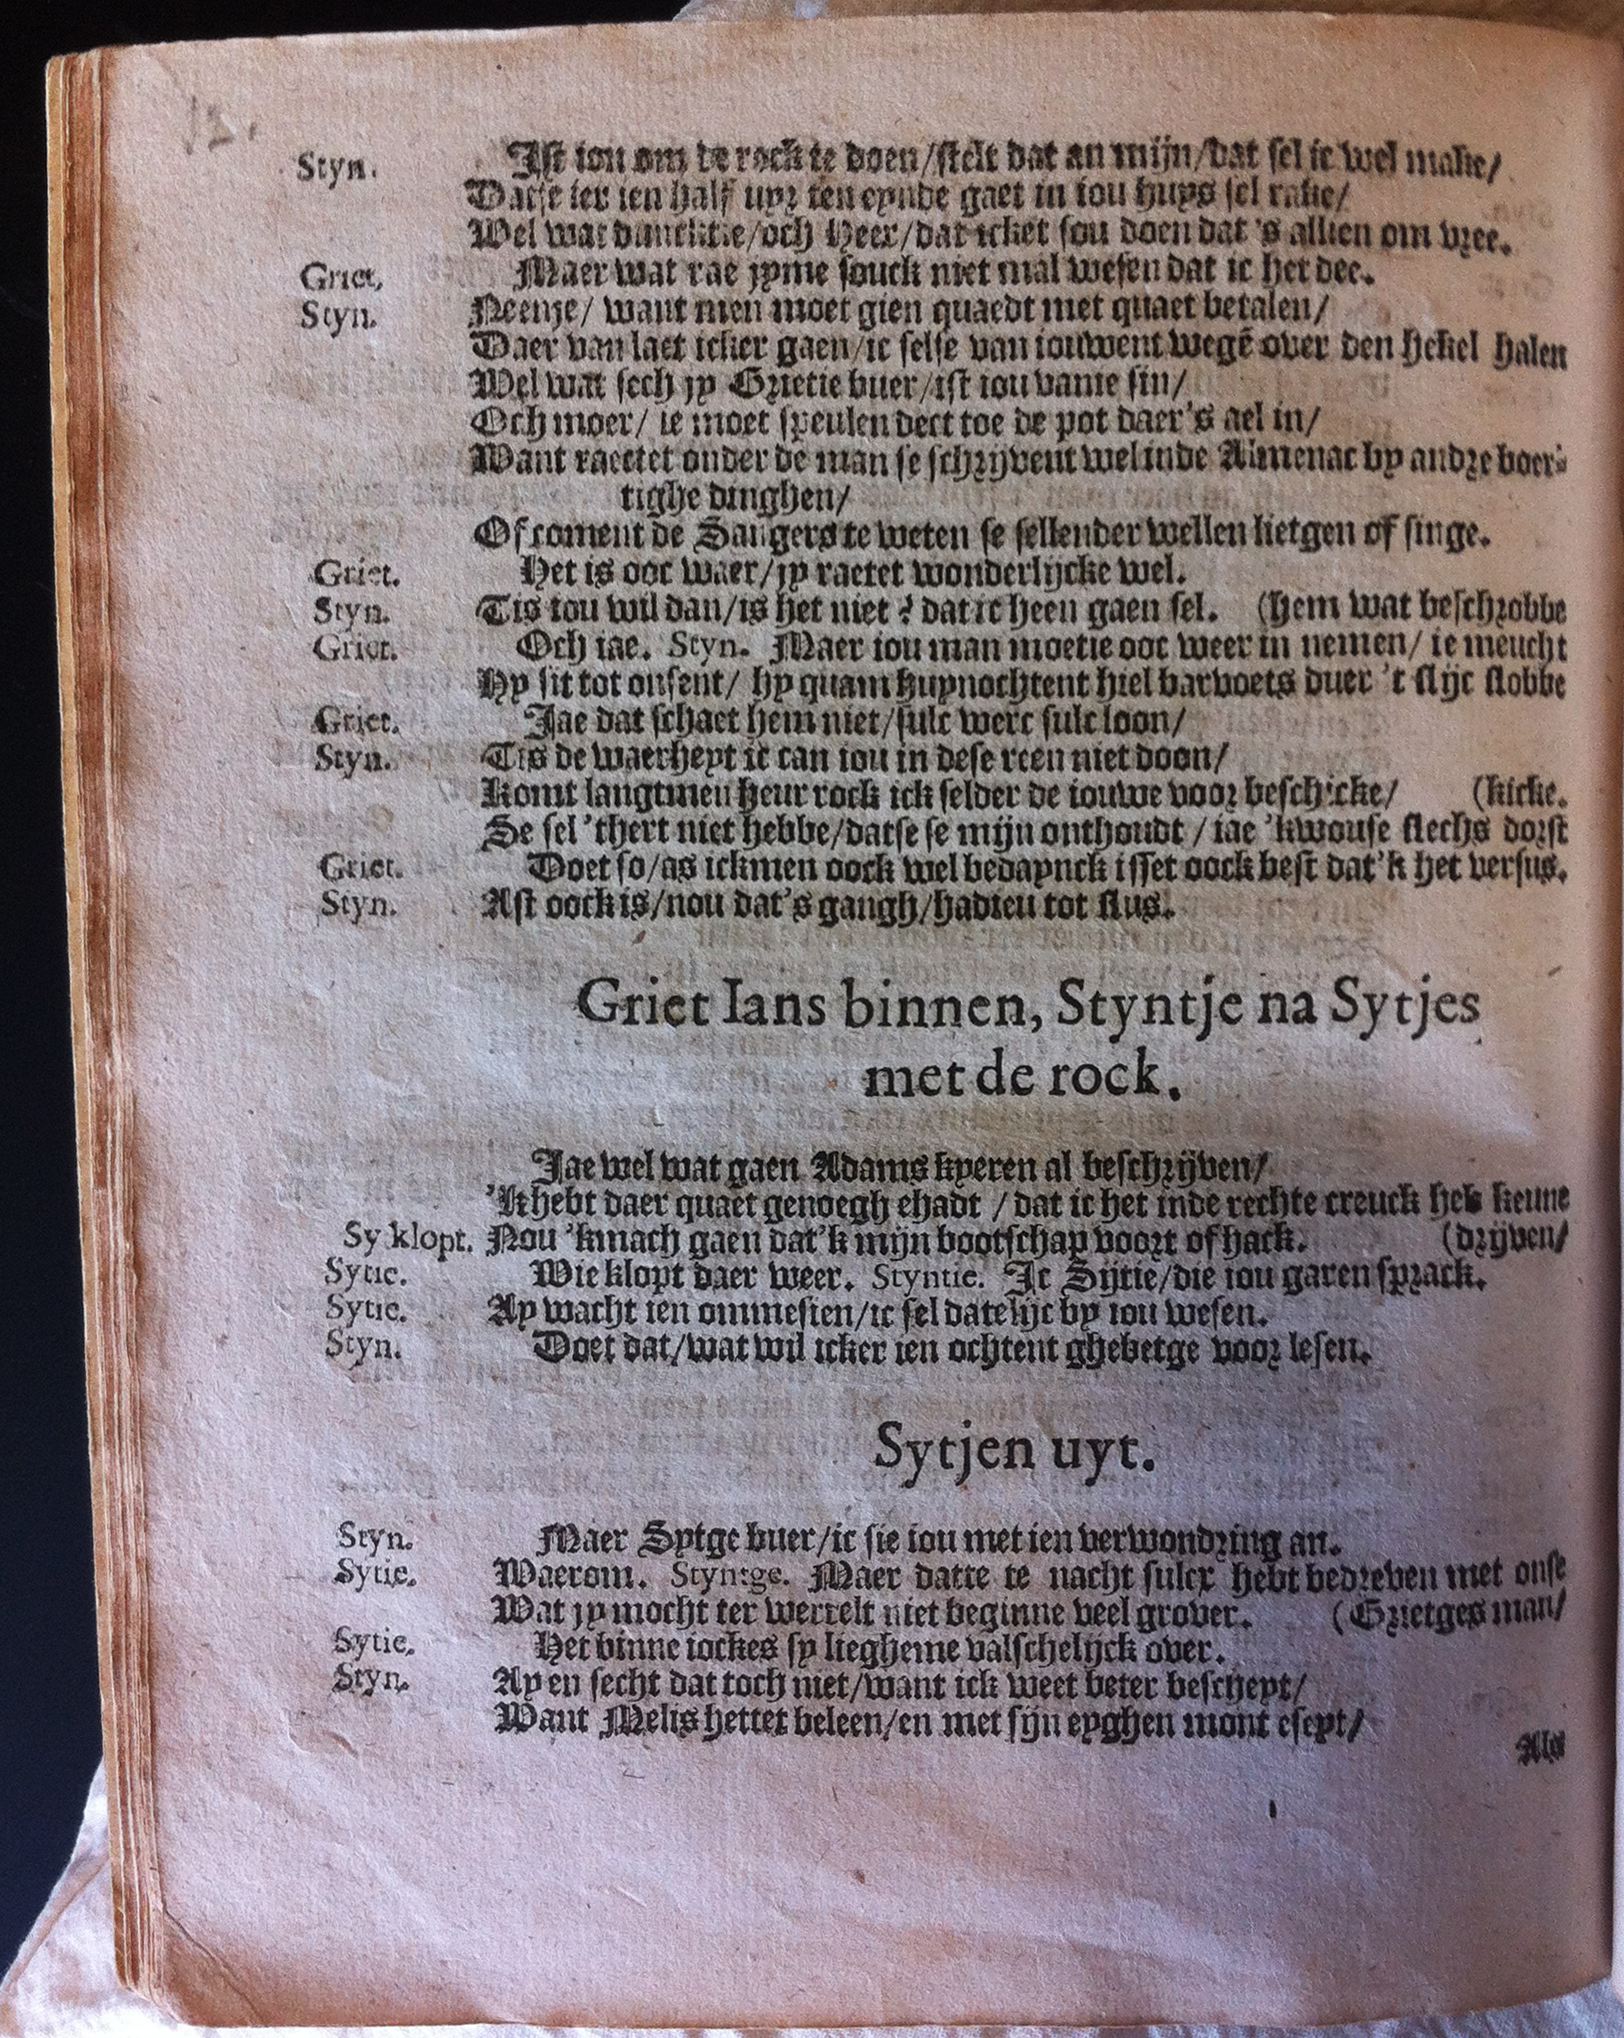 13.
Styn. Ist iou om de rock te doen/stelt dat an mijn/dat sel ic wel make/
Datse ier ien half uyr ten eynde gaet in iou huys sel rake/
Wel wat duncktie/och Heer/dat icket sou doen dat 's allien om vree.
Griet. Maer wat rae jyme souck niet mal wesen dat ic het dee.
Styn. Neenje/ want men moet gien quaedt met quaet betalen/
Daer van laet icker gaen/ic selse van iouwent wegē over den hekel halen
Wel wat sech jy Grietie buer/ist iou vanie sin/
Och moer/ ie moet speulen dect toe de pot daer's ael in/
Want raectet onder de man se schrijvent wel inde Almenac by andre boer-
tighe dinghen/
Of coment de Sangers te weten se sellender wellen lietgen of singe.
Griet. Het is ooc waer/jy raetet wonderlijcke wel.
Styn. Tis iou wil dan/is het niet? dat ic heen gaen sel. (hem wat beschrobbe
Griet. Och iae. Styn. Maer iou man moetie ooc weer in nemen/ ie meucht
Hy sit tot onsent/ hy quam huynochtent hiel barvoets duer 't slijc slobbe
Griet. Jae dat schaet hem niet/sulc werc sulc loon/
Styn. Tis de waerheyt ic can iou in dese reen niet doon/
Komt langtmen heur rock ick selder de iouwe voor beschicke/ (kicke.
Se sel 'thert niet hebbe/datse se mijn onthoudt/iae 'kwouse slechs dorst
Griet. Doet so/as ickmen oock wel bedaynck isset oock best dat'k het versus.
Styn. Ast oock is/nou dat's gangh/hadieu tot slus.
Griet Ians binnen, Styntje na Sytjes
met de rock.
Jae wel wat gaen Adams kyeren al beschrijven/
'Khebt daer quaet genoegh ehadt/dat ic het inde rechte creuck heb keune
Sy klopt. Nou 'kmach gaen dat'k mijn bootschap voort of hack. (drijven/
Sytie. Wie klopt daer weer. Styntie. Ic Sijtie/die iou garen sprack.
Sytie. Ay wacht ien ommesien/ic sel datelijc by iou wesen.
Styn. Doet dat/wat wil icker ien ochtent ghebetge voor lesen.
Sytjen uyt.
Styn. Maer Sytge buer/ic sie iou met ien verwondring an.
Sytie. Waerom. Styntge. Maer datte te nacht sulcx hebt bedreven met onse
Wat jy mocht ter werrelt niet beginne veel grover. (Grietges man/
Sytie. Het binne iockes sy liegheme valschelijck over.
Styn. Ay en secht dat toch niet/want ick weet beter bescheyt/
Want Melis hettet beleen/en met sijn eyghen mont eseyt/
Als